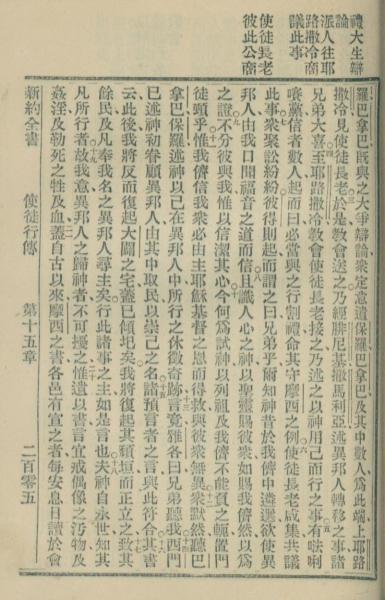 禮大生辯
論
派人往耶
路撒冷商
議此事
使徒長老
彼此公商
羅巴拿巴旣與之大爭辯論衆定意遣保羅巴拿巴及其中數人爲此端上耶路
撒冷見使徒長老於是教會送之乃經腓尼基撒馬利亞述異邦人轉移之事諸
兄弟大喜至耶路撒冷教會使徒長老接之乃述之以神用己而行之事有𠵽唎
㗔黨信者數人起而曰必當與之行割禮命其守摩西之例使徒長老咸集共議
此事衆聚訟紛紛彼得則起而謂之曰兄弟乎爾知神昔於我儕中遴選欲使異
邦人由我口聞福音之道而信且識人心之神以聖靈賜彼衆如賜我儕然以爲
之證不分彼與我惟以信潔其心今何爲試神以列祖及我儕不能負之軛置門
徒頸乎惟我儕信我衆必由主耶穌基督之恩而得救與彼衆無異衆默然聽巴
拿巴保羅述神以己在異邦人中所行之休徵奇跡言竟雅各曰兄弟聽我西門
已述神初眷顧異邦人由其中取民以崇己之名諸預言者之言與此符合其書
云此後我將反而復起大闢之宅蓋已傾圮矣我將復起其頹垣而正立之致其
餘民及凡奉我名之異邦人尋主矣行此諸事之主如是言也夫神自永世知其
凡所行者故我意異邦人之歸神者不可擾之惟遺以書言宜戒偶像之汚物及
姦淫及勒死之牲及血蓋自古以來摩西之書各邑有宣之者每安息日讀於會
新約全書　使徒行傳　第十五章　二百零五